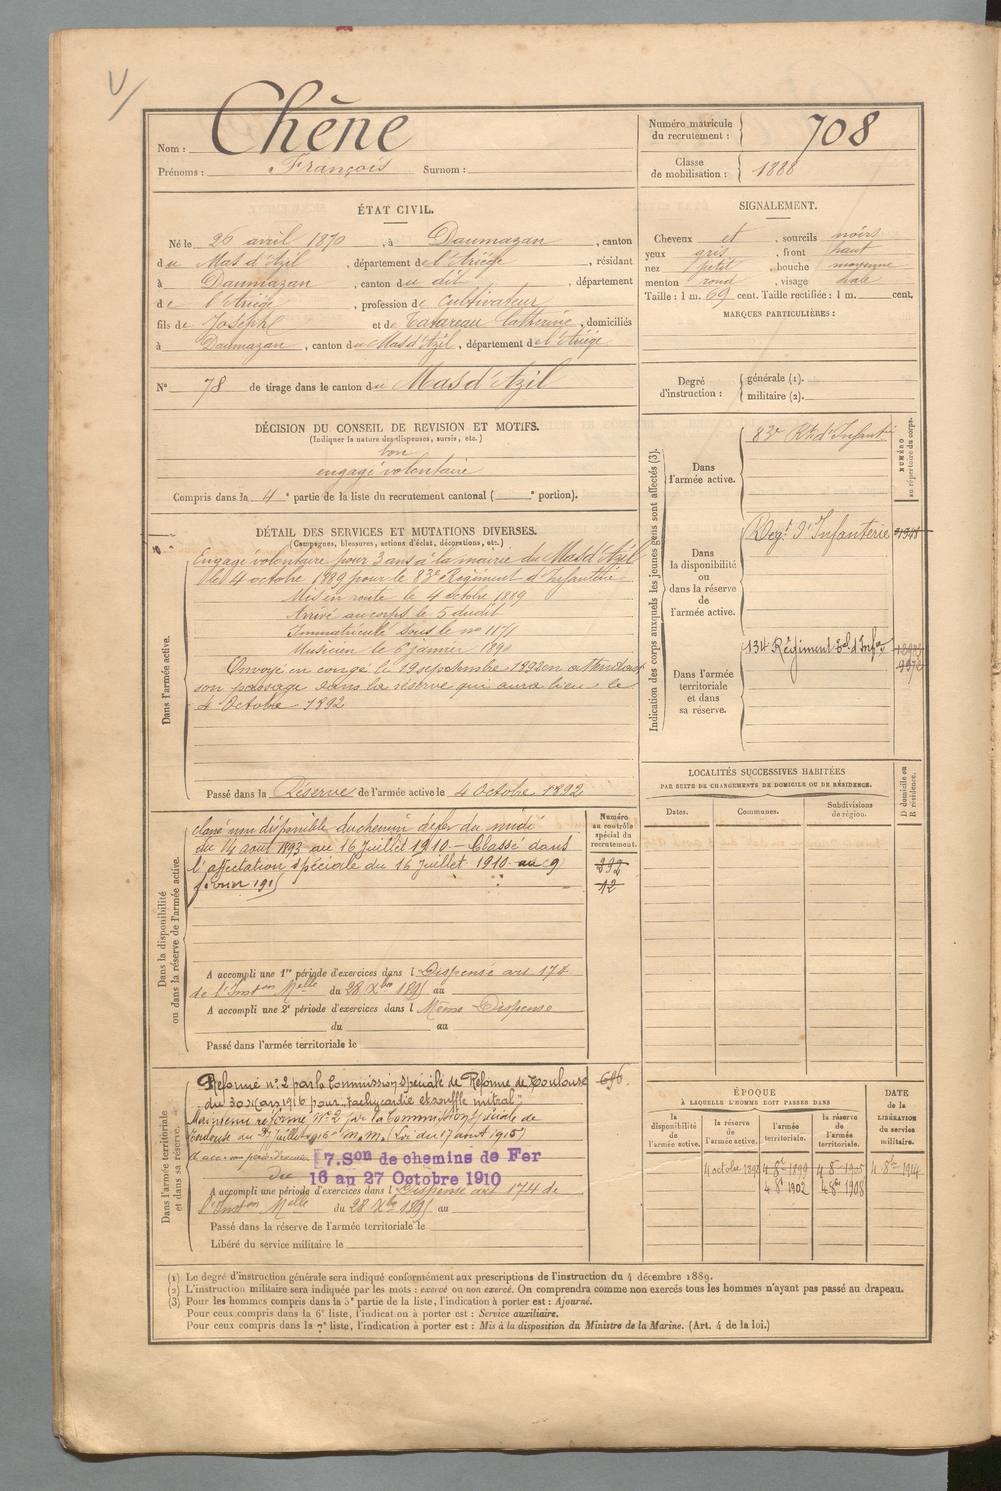 Nom : Chêne
Prénoms : François Surnom :
Numéro matricule du recrutement : 708
Classe de mobilisation : 1888
ÉTAT CIVIL.
Né le 26 avril 1870, à Daumazan, canton
du Mas d'Azil, département de l'Ariège, résidant
à Daumazan, canton du dit, département
de l'Ariège, profession de cultivateur
fils de Joseph et de Catherine, domiciliés
à Daumazan, canton du Mas d'Azil, département de l'Ariège
N° 78 de tirage dans le canton du Mas d'Azil
SIGNALEMENT.
Cheveux et, sourcils noirs
yeux gris, front haut
nez petit, bouche moyenne
menton rond, visage
Taille : 1 m. 69 cent. Taille rectifiée : 1 m. cent.
MARQUES PARTICULIÈRES :
Degré d'instruction : générale (1).
militaire (2).
DÉCISION DU CONSEIL DE REVISION ET MOTIFS.
(Indiquer la nature des dispenses, sursis, etc.)
bon
engagé volontaire
Compris dans la 4e partie de la liste du recrutement cantonal ( e portion).
DÉTAIL DES SERVICES ET MUTATIONS DIVERSES.
(Campagnes, blessures, actions d'éclat, décorations, etc.)
Dans l'armée active.
Engagé volontaire pour 3 ans à la mairie du Mas d'Azil
le 4 octobre 1889 pour le 83e Régiment d'Infanterie
Mis en route le 4 octobre 1889
Arrivé au corps le 5 dudit
Immatriculé sous le no 1171
Musicien le 6 janvier 1890
Envoyé en congé le 19 septembre 1892 en attendant
son passage dans la réserve qui aura lieu le
4 Octobre 1892
Passé dans la Réserve de l'armée active le 4 Octobre 1892
Indication des corps auxquels les jeunes gens sont affectés (3).
NUMÉRO au répertoire du corps.
Dans l'armée active.
83e Rt d'Infant
Dans la disponibilité ou dans la réserve de l'armée active.
Regt d'Infanterie
Dans l'armée territoriale et dans sa réserve.
134 Régiment Tal d'Infie
Dans la disponibilité ou dans la réserve de l'armée active.
Numéro au contrôle spécial du recrutement.
classé non disponible du chemin de fer du midi
du 14 août 1893 au 16 Juillet 1910 – Classé dans
l'affectation spéciale du 16 Juillet 1910 au 9
février 1915
12
A accompli une 1re période d'exercices dans l Dispensé art 174
de l'Inston Melle du 28 Xbre 1895 au
A accompli une 2e période d'exercices dans l Même Dispense
du au
Passé dans l'armée territoriale le
LOCALITÉS SUCCESSIVES HABITÉES
PAR SUITE DE CHANGEMENTS DE DOMICILE OU DE RÉSIDENCE.
Dates. Communes. Subdivisions de région. D domicile ou R résidence.
Dans l'armée territoriale et dans sa réserve.
Réformé n° 2 par la Commission Spéciale de Réforme de Toulouse
du 30 Mars 1916 pour "tachycardie et souffle mitral".
Maintenu réformé N° 2 par la Commission Spéciale de
Toulouse du Juillet 1916 pr m.m. (Loi du 17 août 1915)
696
7.Son de chemins de Fer
du 16 au 27 Octobre 1910
A accompli une période d'exercices dans l Dispense art 174 de
l'Inston Melle du 28 Xbre 1895 au
Passé dans la réserve de l'armée territoriale le
Libéré du service militaire le
ÉPOQUE
À LAQUELLE L'HOMME DOIT PASSER DANS
DATE de la LIBÉRATION du service militaire.
la disponibilité de l'armée active. la réserve de l'armée active. l'armée territoriale. la réserve de l'armée territoriale.
4 octobre 1892 4 8bre 1899 4 8 1905 4 8bre 1914
4 8e 1902 4 8bre 1908
(1) Le degré d'instruction générale sera indiqué conformément aux prescriptions de l'instruction du 4 décembre 1889.
(2) L'instruction militaire sera indiquée par les mots : exercé ou non exercé. On comprendra comme non exercés tous les hommes n'ayant pas passé au drapeau.
(3) Pour les hommes compris dans la 5e partie de la liste, l'indication à porter est : Ajourné.
Pour ceux compris dans la 6e liste, l'indication à porter est : Service auxiliaire.
Pour ceux compris dans la 7e liste, l'indication à porter est : Mis à la disposition du Ministre de la Marine. (Art. 4 de la loi.)